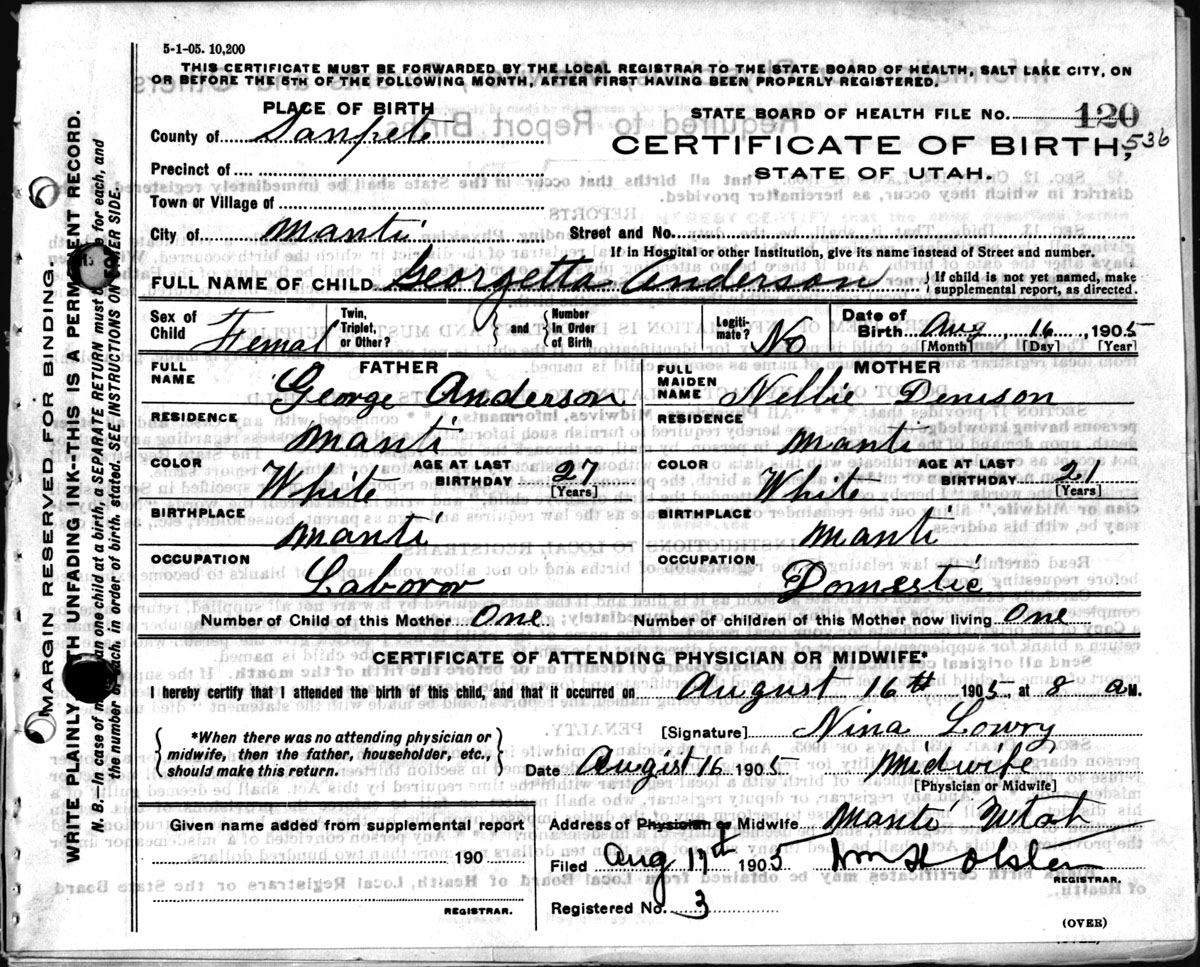 5-1-05. 10,200
THIS CERTIFICATE MUST BE FORWARDED BY THE LOCAL REGISTRAR TO THE STATE BOARD OF HEALTH, SALT LAKE CITY, ON
OR BEFORE THE 5TH OF THE FOLLOWING MONTH, AFTER FIRST HAVING BEEN PROPERLY REGISTERED.
PLACE OF BIRTH
County of Sanpete
Precinct of
Town or Village of
City of Manti
STATE BOARD OF HEALTH FILE No. 120
536
CERTIFICATE OF BIRTH,
STATE OF UTAH.
Street and No.
If in Hospital or other Institution, give its name instead of Street and number.
FULL NAME OF CHILD Georgetta Anderson { If child is not yet named, make
supplemental report, as directed.
Sex of Child Femal
Twin, Triplet, or Other? } and { Number In Order of Birth
Legiti-mate? No
Date of Birth Aug 16 1905
[Month] [Day] [Year]
FATHER
FULL NAME George Anderson
RESIDENCE Manti
COLOR White AGE AT LAST BIRTHDAY 27
[Years]
BIRTHPLACE Manti
OCCUPATION Laboror
MOTHER
FULL MAIDEN NAME Nellie Denison
RESIDENCE Manti
COLOR White AGE AT LAST BIRTHDAY 21
[Years]
BIRTHPLACE Manti
OCCUPATION Domestic
Number of Child of this Mother One Number of children of this Mother now living One
CERTIFICATE OF ATTENDING PHYSICIAN OR MIDWIFE*
I hereby certify that I attended the birth of this child, and that it occurred on August 16th 1905 at 8 a M.
{ *When there was no attending physician or
midwife, then the father, householder, etc.,
should make this return. }
[Signature] Nina Lowry
Date August 16 1905 Midwife
[Physician or Midwife]
Given name added from supplemental report
190
REGISTRAR.
Address of Physician or Midwife Manti Utah
Filed Aug 17th 1905 Wm H Olsten
REGISTRAR.
Registered No. 3
(OVER)
MARGIN RESERVED FOR BINDING.
WRITE PLAINLY WITH UNFADING INK--THIS IS A PERMANENT RECORD.
N. B.--In case of more than one child at a birth, a SEPARATE RETURN must be made for each, and
the number of each, in order of birth, stated. SEE INSTRUCTIONS ON OTHER SIDE.